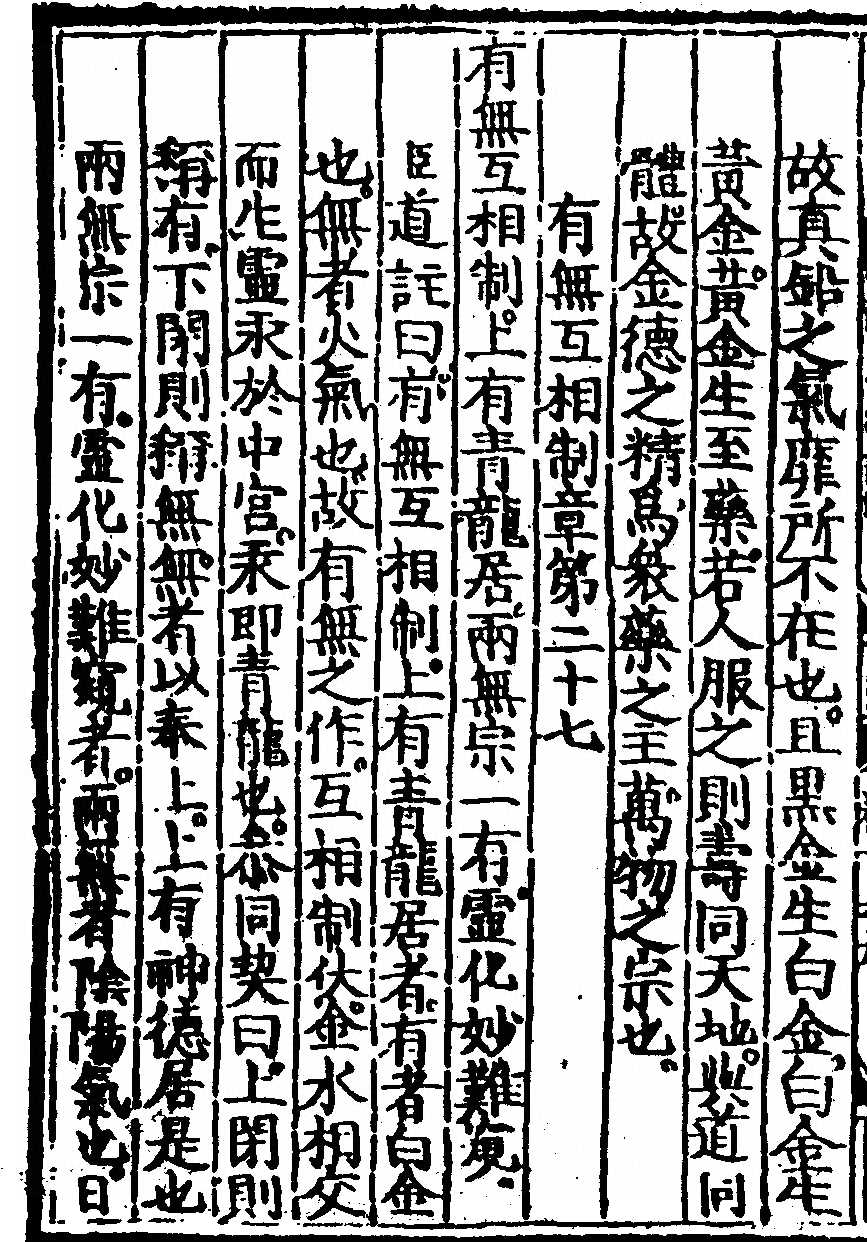 故真鉛之氣靡所不在也且黑金生白金白金生
黃金黃金生至藥若人服之則壽同天地與道同
體故金德之精爲衆藥之主萬物之宗也
有無互相制章第二十七
有無互相制上有青龍居兩無宗一有靈化妙難窺
臣道註曰有無互相制上有青龍居者有者白金
也無者火氣也故有無之作互相制伏金水相交
而生靈汞於中宮汞即青龍也叅同契曰上閉則
稱有下閉則稱無無者以奉上上有神德居是也
兩無宗一有靈化妙難窺者兩無者陰陽氣也日